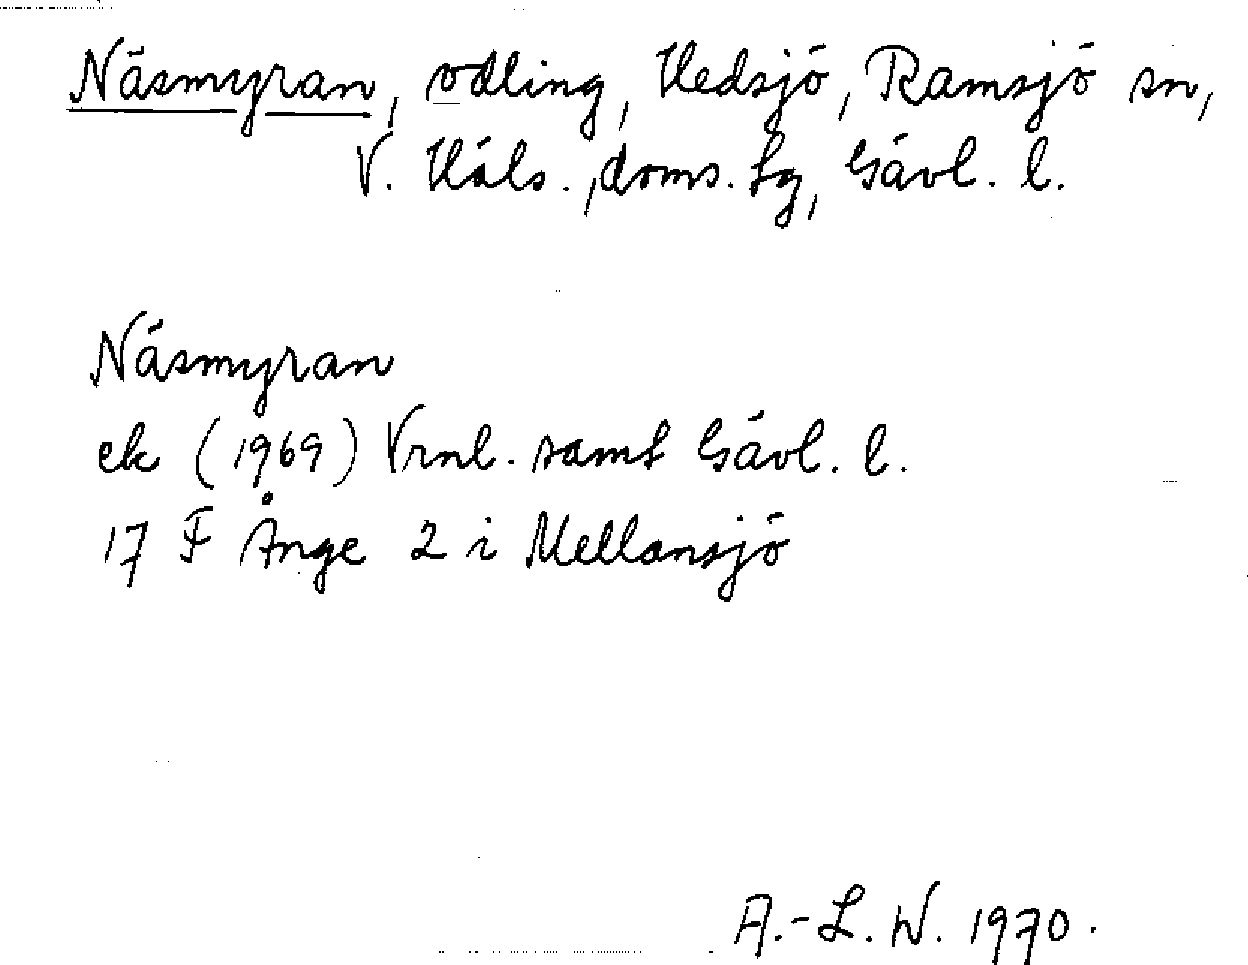 Näsmyran, odling, Hedsjö, Ramsjö sn,
V. Häls., doms. fg, Gävl. l.
Näsmyran
ek (1969) Vrnl. samt Gävl. l.
17 F Ånge 2 i Mellansjö
A.-L. W. 1970.